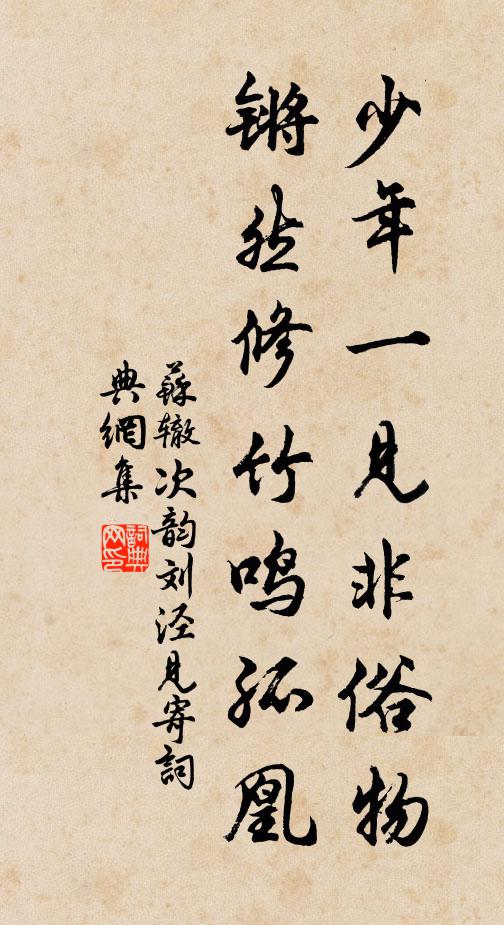 少年一见非俗物
锵然修竹鸣孤凰
蘇辙次韵刘泾见寄詞
典網集
詞典网印